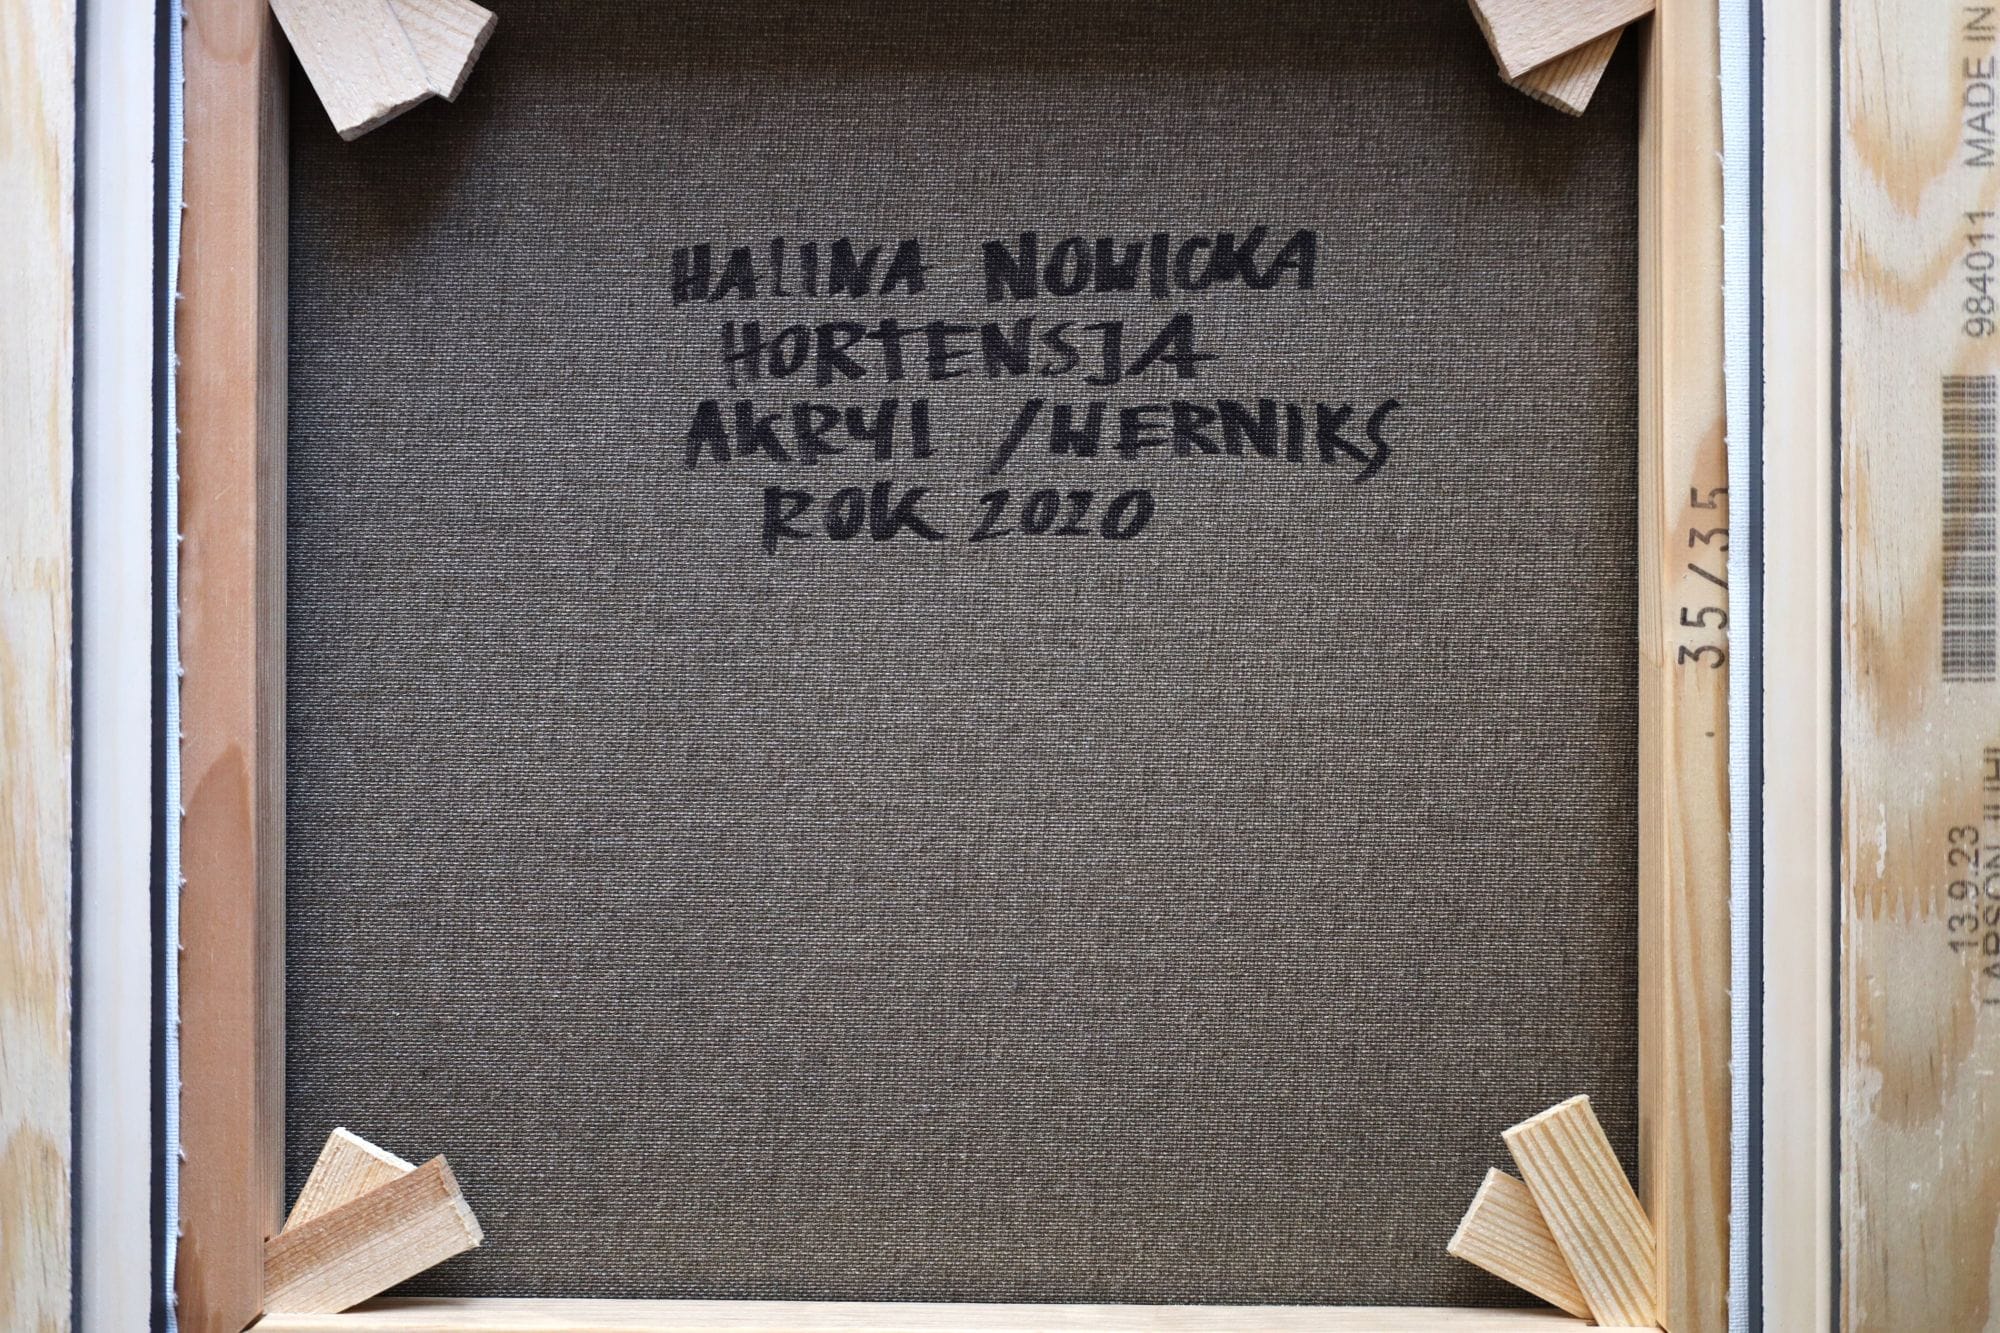 HALINA NOWICKA
HORTENSJA
AKRYL / WERNIKS
ROK 2020
35/35
984011 MADE IN
13.9.23
LARSON JUHL